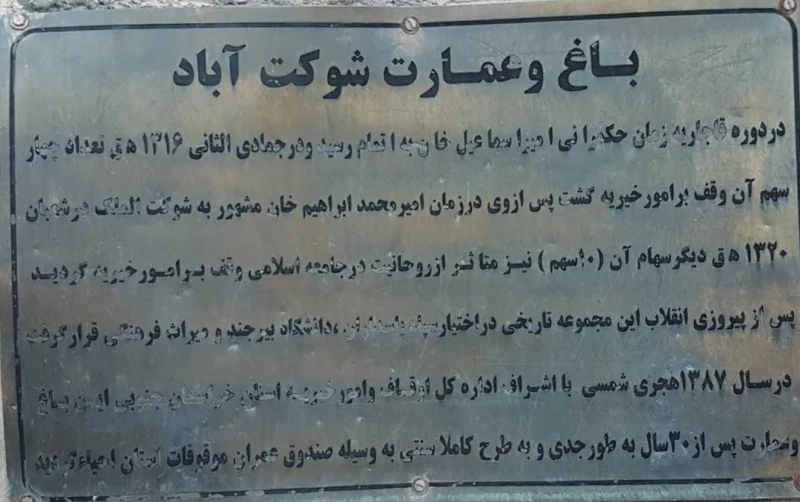 باغ و عمارت شوکت آباد
در دوره قاجاریه زمان حکمرانی امیر اسماعیل خان به اتمام رسید و در جمادی الثانی ۱۳۱۶ ه ق تعداد چهار
سهم آن وقف بر امور خیریه گشت پس از وی در زمان امیر محمد ابراهیم خان مشهور به شوکت الملک در شعبان
۱۳۲۰ ه ق دیگر سهام آن (۱۰سهم) نیز متاثر از روحانیت در جامعه اسلامی وقف بر امور خیریه گردید
پس از پیروزی انقلاب این مجموعه تاریخی در اختیار سپاه پاسداران ، دانشگاه بیرجند و میراث فرهنگی قرار گرفت
در سال ۱۳۸۷ هجری شمسی با اشراف اداره کل اوقاف و امور خیریه استان خراسان جنوبی این باغ
و عمارت پس از ۳۰ سال به طور جدی و به طرح کاملا سنتی به وسیله صندوق عمران موقوفات استان احیاء گردید